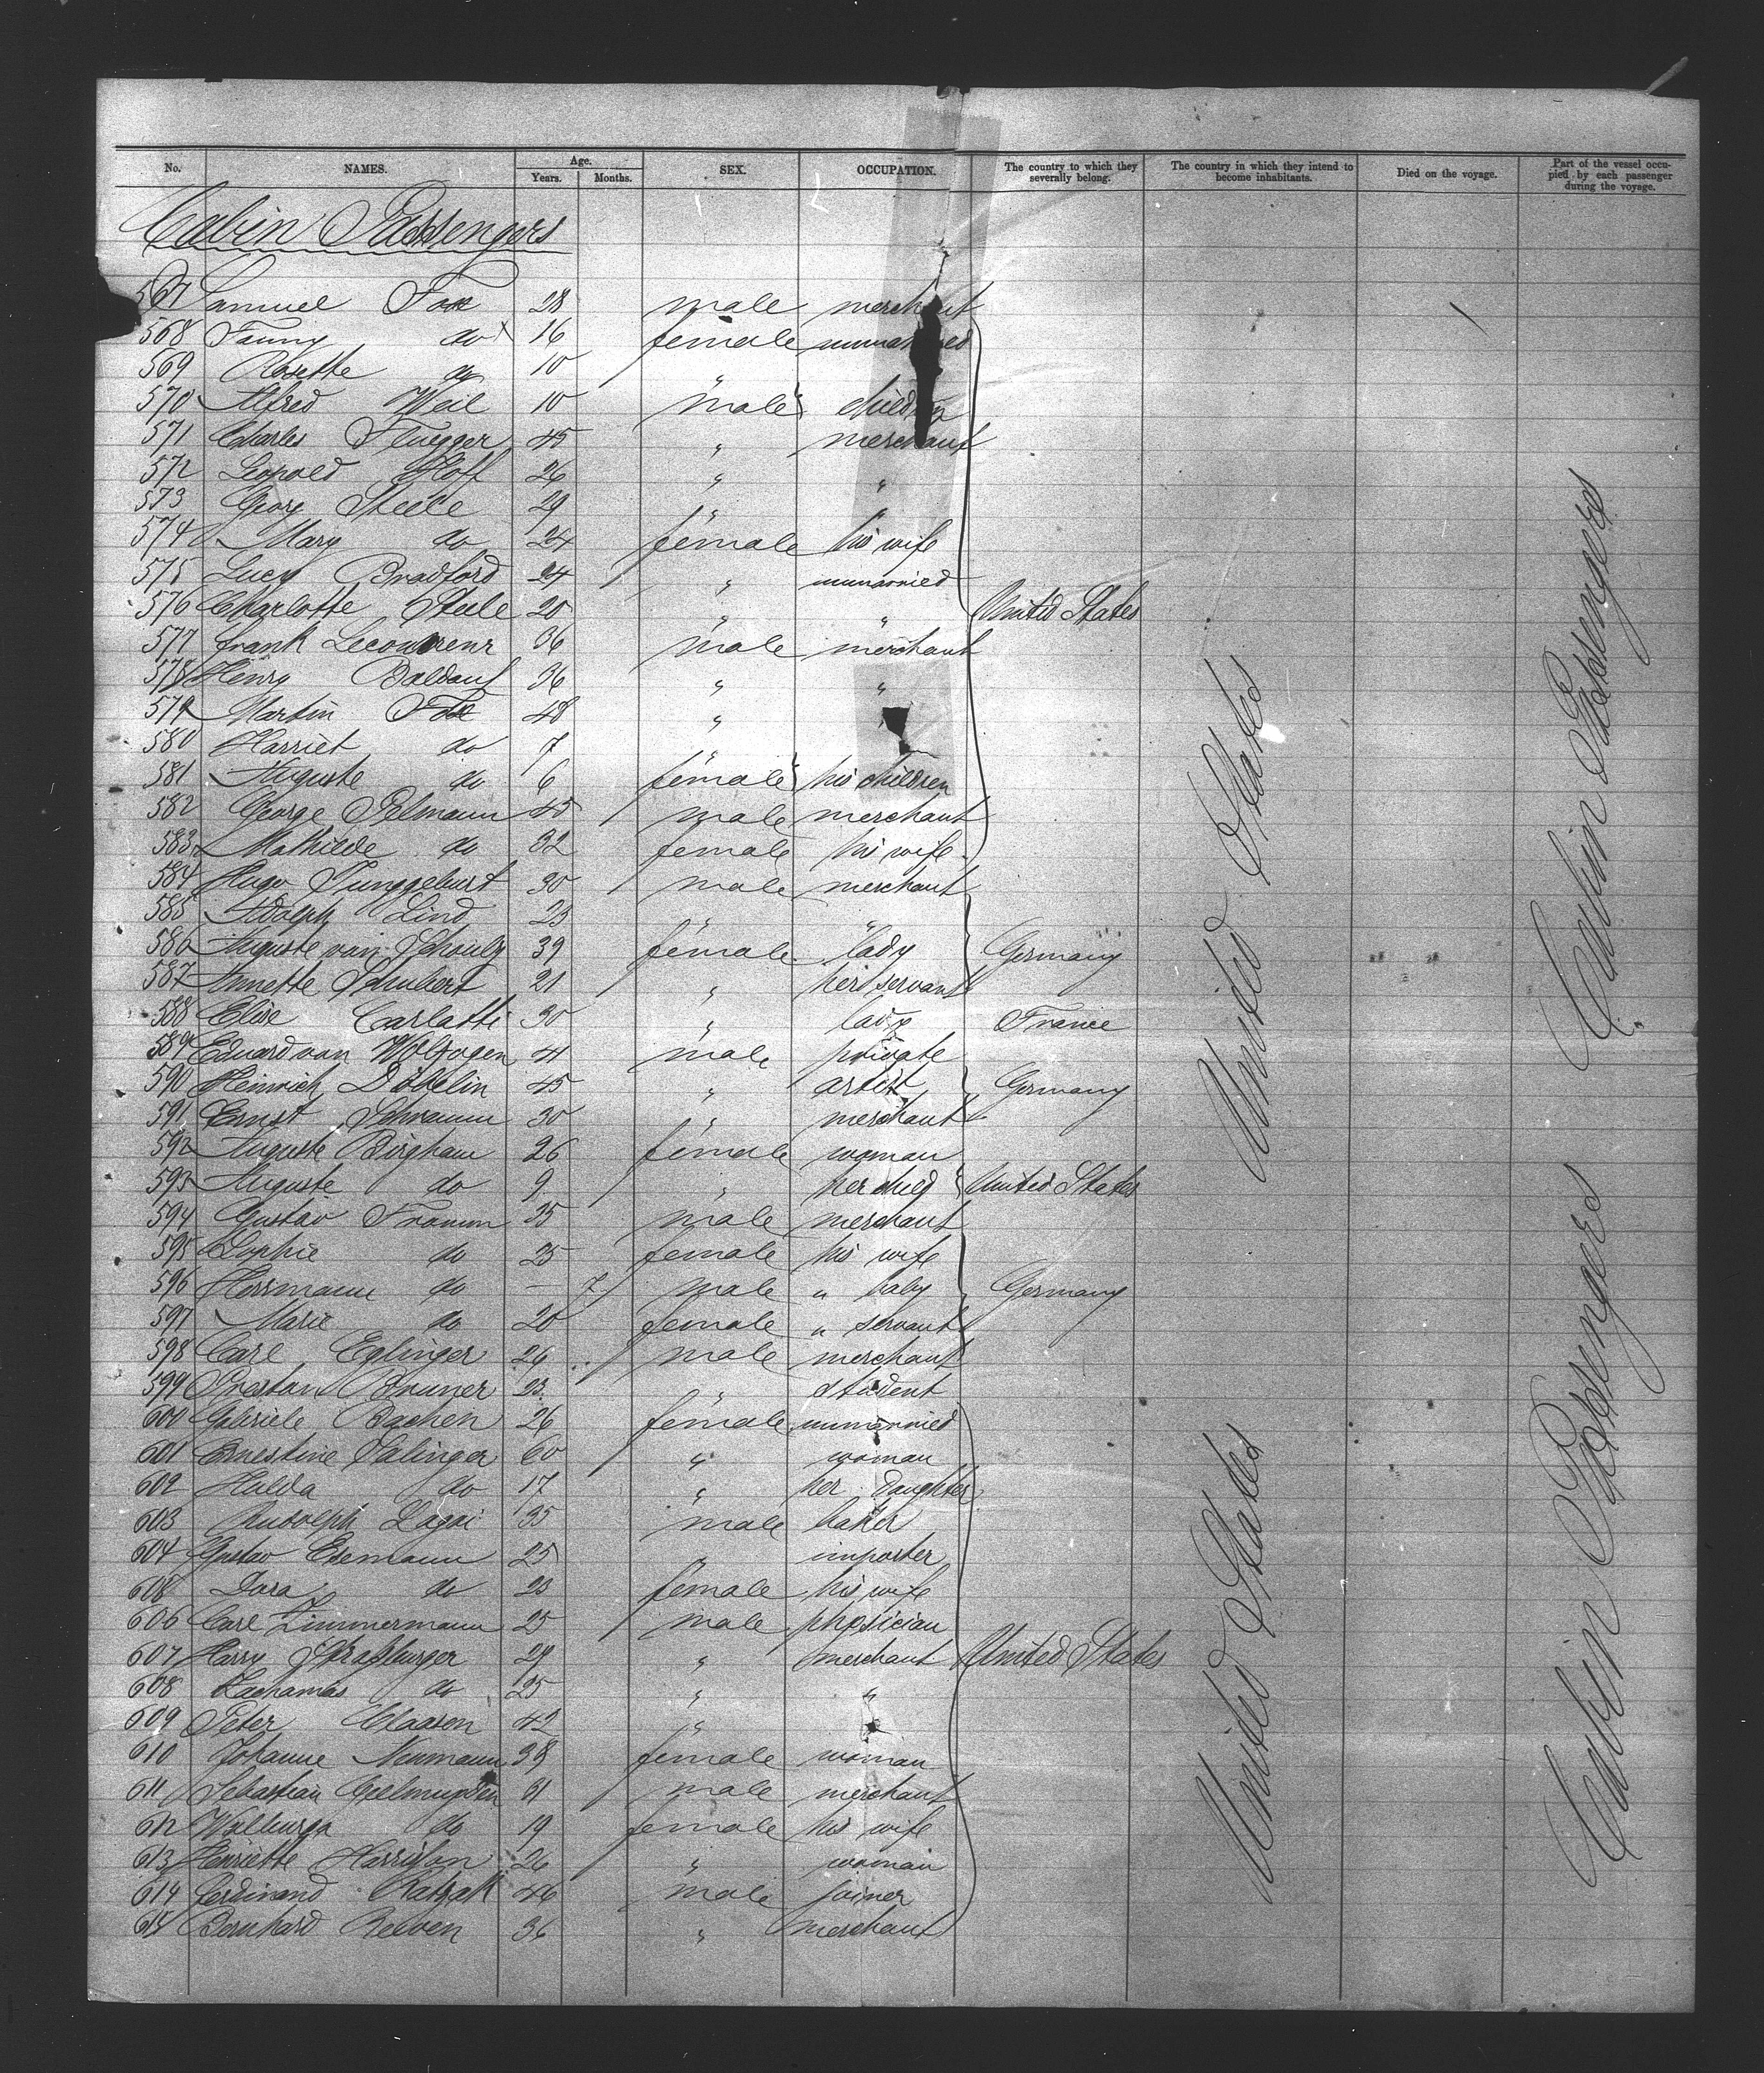 No. NAMES. Age. Years. Months. SEX. OCCUPATION. The country to which they severally belong. The country in which they intend to become inhabitants. Died on the voyage. Part of the vessel occupied by each passenger during the voyage.
Cabin Passengers
567 Samuel 28 male merchant
568 Fanny do 16 female unmarried
569 Rosette do 10 "
570 Alfred Weil 10 male children
571 Charles Fluegger 45 " merchant
572 Leopold Hoff 26 " "
573 Georg Steele 29 " "
574 Mary do 24 female his wife
575 Lucy Bradford 24 " unmarried
576 Charlotte Steele 20 " " United States
577 Frank 36 male merchant
578 Henry Baldauf 36 " "
579 Martin 48 "
580 Harriet do 7 "
581 Auguste do 6 female his children
582 George Pelmann 45 male merchant
583 Mathilde do 32 female his wife
584 Hugo Junggeburt 30 male merchant
585 Adolph Lind 23 " "
586 Auguste van 39 female lady Germany
587 Annette Schubert 21 " her servant
588 Elise Carlatti 30 " lady France
589 Eduard van Wolzogen 41 male private
590 Heinrich 45 " artist Germany
591 Ernst Schramm 30 " merchant
592 Auguste Bingham 26 female woman
593 Auguste do 9 " her child United States
594 Gustav Fromm 35 male merchant
595 Sophie do 25 female his wife
596 Herrmann do — 7 male " baby Germany
597 Marie do 20 female " servant
598 Carl Eglinger 26 male merchant
599 Preston Bruner 23 " student
600 Gabriele Bachen 26 female unmarried
601 Ernestine Salinger 60 " woman
602 Hulda do 17 " her daughter
603 Rudolph 35 male baker
604 Gustav Esemann 25 " importer
605 Dora do 23 female his wife
606 Carl Zimmermann 25 male physician
607 Harry Straßburger 29 " merchant United States
608 do 25 " "
609 Peter Claasen 42 "
610 Johanne Neumann 38 female woman
611 Sebastian 31 male merchant
612 Walburga do 19 female his wife
613 Henriette Harrison 26 " woman
614 Ferdinand 46 male joiner
615 Bernhard Reeven 36 " merchant
United States
United States
Cabin Passengers
Cabin Passengers